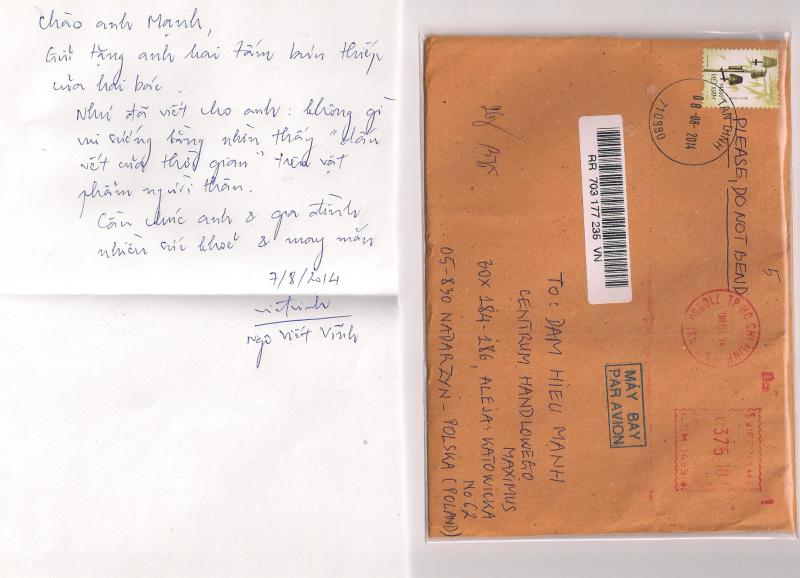 Chào anh Mạnh,
Gửi tặng anh hai tấm bưu thiếp
của hai bác.
Như đã viết cho anh: không gì
vui sướng bằng nhìn thấy "dấu
vết của thời gian" trên vật
phẩm người thân.
Cầu chúc anh & gia đình
nhiều sức khoẻ & may mắn
7/8/2014
Ngô Viết Vinh
VIETNAM
TAN DINH
08-08-2014
710980
PLEASE, DO NOT BEND
5
RR 703 177 235 VN
TP HO CHI MINH
MÁY BAY
PAR AVION
375 10
To: DAM HIEU MANH
CENTRUM HANDLOWEGO
MAXIMUS
BOX 184-186, ALEJA: KATOWICKA
No 62
05-830 NADARZYN - POLSKA (POLAND)